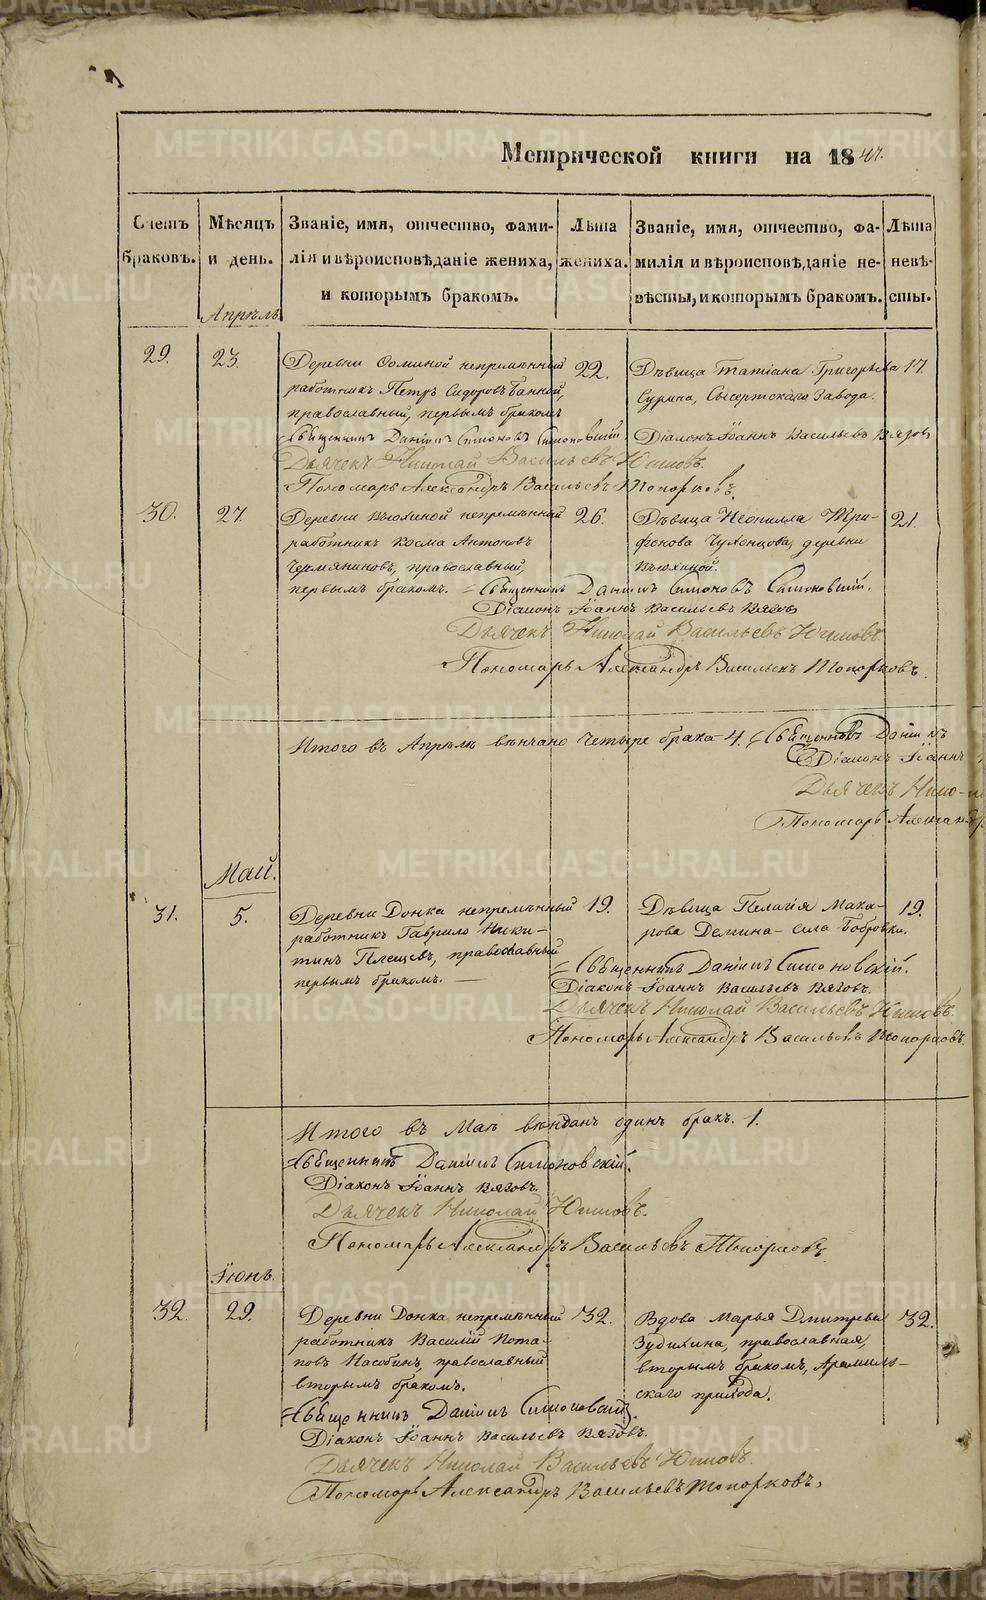 Метрической книги на 1847.
Счетъ браковъ.
Мѣсяцъ и день.
Званіе, имя, отчество, фамилія и вѣроисповѣданіе жениха, и которымъ бракомъ.
Лѣта жениха.
Званіе, имя, отчество, фамилія и вѣроисповѣданіе невѣсты, и которымъ бракомъ.
Лѣта невѣсты.
Апрѣль
29. 23.
Деревни непремѣнный
работникъ Петръ Сидоровъ Банной,
православный, первымъ бракомъ
22.
Дѣвица Татіана Григорьева
Сурина, Сысертскаго Завода.
17
Священникъ Даніилъ Симоновъ Симоновскій.
Діаконъ Іоаннъ Васильевъ Вяговъ
Дьячекъ Николай Васильевъ
Пономарь Александръ Васильевъ Топорковъ.
30. 27.
Деревни непремѣнный
работникъ Косма Антоновъ
Чермяниновъ, православный,
первымъ бракомъ.
26.
Дѣвица Неонилла Три-
фонова Чухонцова, деревни
21.
Священникъ Даніилъ Симоновъ Симоновскій.
Діаконъ Іоаннъ Васильевъ Вяговъ
Дьячекъ Николай Васильевъ
Пономарь Александръ Васильевъ Топорковъ.
Итого въ Апрѣлѣ вѣнчано четыре брака 4. Священникъ Даніилъ
Діаконъ Іоаннъ
Дьячекъ Нико-
Пономарь Александ
Май.
31. 5.
Деревни Донка непремѣнный
работникъ Гаврило Ники-
тинъ Плещевъ, православный
первымъ бракомъ.
19.
Дѣвица Пелагія Мака-
рова Демина села Бобровки.
19.
Священникъ Даніилъ Симоновскій.
Діаконъ Іоаннъ Васильевъ Вяговъ.
Дьячекъ Николай Васильевъ
Пономарь Александръ Васильевъ Топорковъ.
Итого въ Маѣ вѣнчанъ одинъ бракъ. 1.
Священникъ Даніилъ Симоновскій.
Діаконъ Іоаннъ Вяговъ.
Дьячекъ Николай
Пономарь Александръ Васильевъ Топорковъ
Іюнь.
32. 29.
Деревни Донка непремѣнный
работникъ Василій Пота-
повъ православный
вторымъ бракомъ.
32.
Вдова Марья Дмитрева
Зудихина, православная,
вторымъ бракомъ, Арамиль-
скаго прихода.
32.
Священникъ Даніилъ Симоновскій.
Діаконъ Іоаннъ Васильевъ Вяговъ.
Дьячекъ Николай Васильевъ
Пономарь Александръ Васильевъ Топорковъ,
METRIKI.GASO-URAL.RU